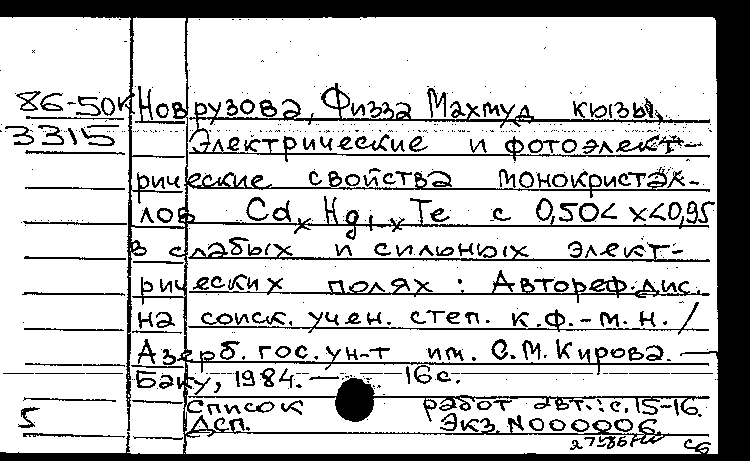 86-50к Новрузова, Физза Махмуд кызы.
3315 Электрические и фотоэлект-
рические свойства монокристал-
лов Cdx Hg1-x Te с 0,50< x<0,95
в слабых и сильных элект-
рических полях : Автореф.дис.
на соиск. учен. степ. к.ф.-м.н. /
Азерб. гос. ун-т им. С.М.Кирова. —
Баку, 1984. — 16 с.
Список работ авт.: с.15-16.
5 Дсп. Экз. N000006.
сб